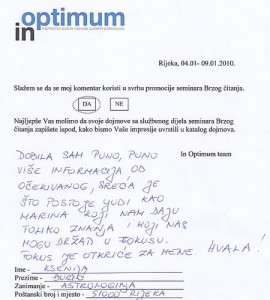 optimum
in
Rijeka, 04.01- 09.01.2010.
Slažem se da se moj komentar koristi u svrhu promocije seminara Brzog čitanja.
DA NE
Najljepše Vas molimo da svoje dojmove sa službenog dijela seminara Brzog
čitanja zapišete ispod, kako bismo Vaše impresije uvrstili u katalog dojmova.
In Optimum team
DOBILA SAM PUNO, PUNO
VIŠE INFORMACIJA OD
OČEKIVANOG, SREĆA JE
ŠTO POSTOJE LJUDI KAO
MARINA KOJI NAM DAJU
TOLIKO ZNANJA I KOJI NAS
MOGU DRŽATI U FOKUSU.
FOKUS JE OTKRIĆE ZA MENE. HVALA!
Ime - KSENIJA
Prezime -
Zanimanje - ASTROLOGINJA
Poštanski broj i mjesto - 51000 RIJEKA